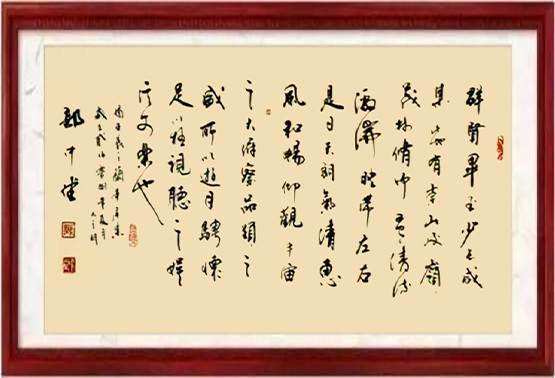 群賢畢至少長咸
集此地有崇山峻嶺
茂林脩竹又有清流
激湍映帶左右
是日天朗氣清惠
風和暢仰觀宇宙
之大俯察品類之
盛所以遊目騁懷
足以極視聽之娛
信可樂也